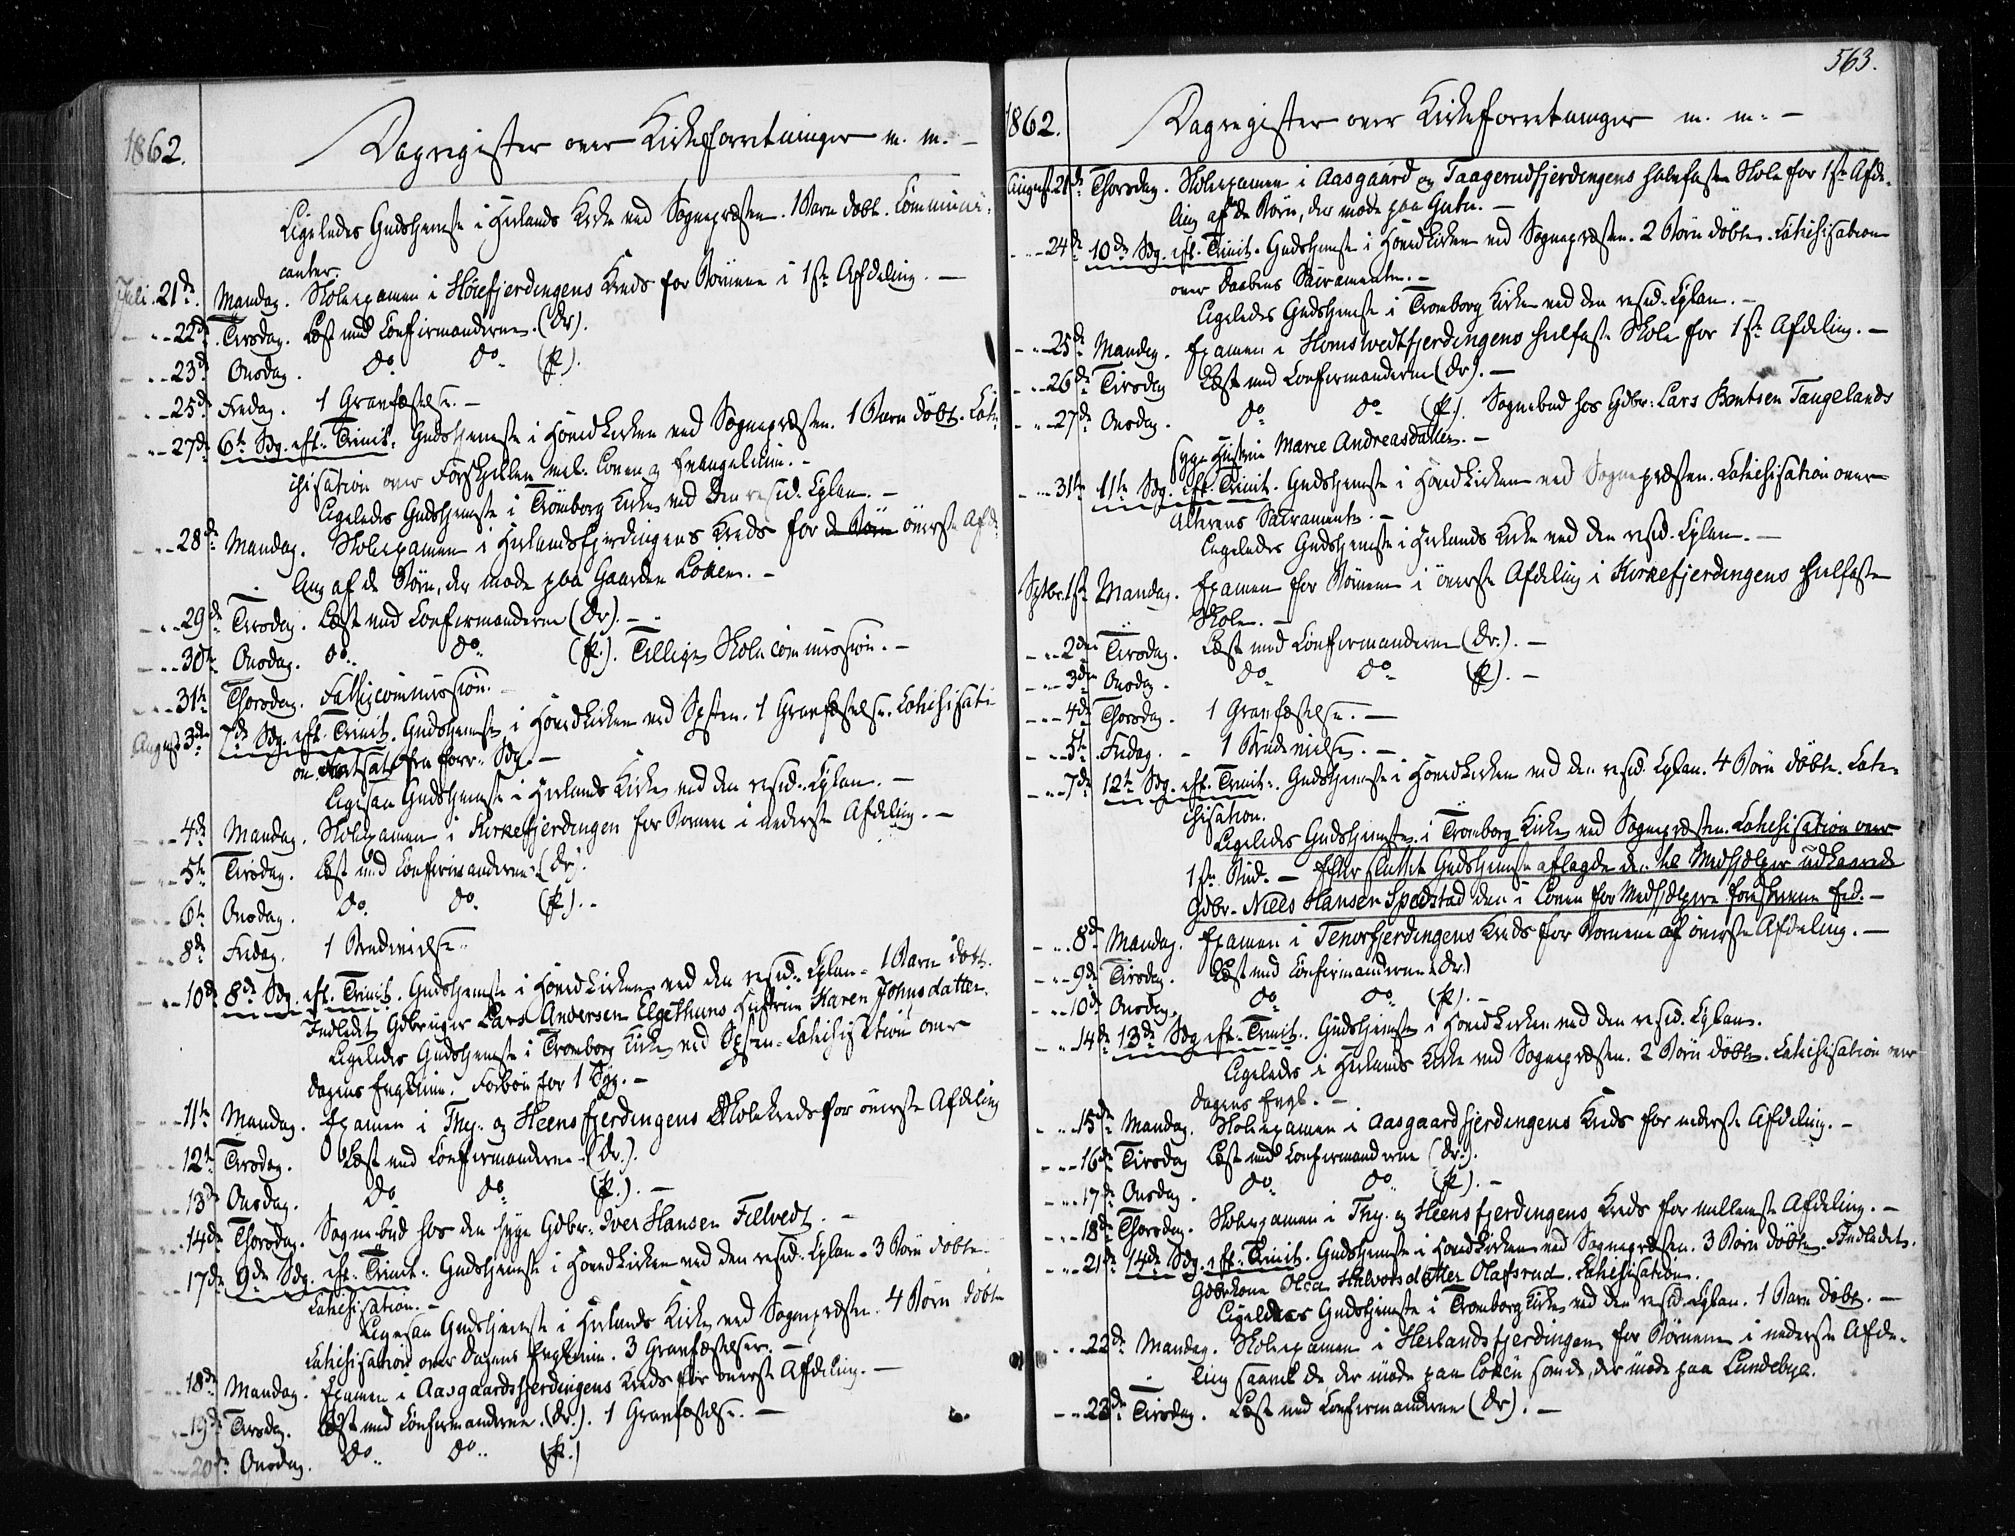 1862.
Dagregister over Kirkeforretninger m. m. –
Ligeledes Gudstjeneste i Herlands Kirke ved Sognepræsten. 1 Barn døbt. Communi-
canter.
Juli. 21de. Mandag. Skoleexamen i Høiefjerdingens Kreds for Børnene i 1ste Afdeling. –
22de Tirsdag. Læst med Confirmanderne. (Dr).
23de Onsdag. Do Do (P).
25de Fredag. 1 Gravfæstelse. –
27de 6te Sdg. eft. Trinit. Gudstjeneste i Hovedkirken ved Sognepræsten. 1 Barn døbt. Cate-
chisation over Forskjellen mel. Loven og Evangelium. –
Ligeledes Gudstjeneste i Trømborg Kirke ved den resid. Cplan. –
28de Mandag. Skoleexamen i Herlandsfjerdingens Kreds for de Børn överste Afde-
ling af de Börn, der møde paa Gaarden Løken. –
29de Tirsdag. Læst med Confirmanderne (Dr). –
30te Onsdag. Do Do (P.). Tillige Skolecommission. –
31te Thorsdag. Fattigcommission.
August 3die 7de Sdg. eft. Trinit. Gudstjeneste i Hovedkirken ved Spsten. 1 Gravfæstelse. Catechisati-
on fortsat fra forr. Sdg. –
Ligesaa Gudstjeneste i Herlands Kirke ved den resid. Cplan. –
4de Mandag. Skoleexamen i Kirkefjerdingen for Børnene i nederste Afdeling. –
5te Tirsdag. Læst med Confirmanderne. (Dr).
6te Onsdag. Do. Do. (P). –
8de Fredag. 1 Brudevielse.
10de 8de Sdg. eft. Trinit. Gudstjeneste i Hovedkirken ved den resid. Cplan. 1 Barn døbt.
Indledt Gdbruger Lars Andersen Elgethuns Hustrue Karen Johnsdatter.
Ligeledes Gudstjeneste i Tromborg Kirke ved Spsten. Catechisation over
dagens Evglium. Forbön for 1 Syg. –
11te Mandag. Examen i Thy- og Heensfjerdingens Skolekreds for överste Afdeling
12te Tirsdag. Læst med Confirmanderne (Dr.).
13de Onsdag. Do Do (P.). –
14de Thorsdag. Sognebud hos den syge Gdbr. Iver Hansen Fillvedt. –
17de 9de Sdg. eft. Trinit. Gudstjeneste i Hovedkirken ved den resid. Cplan. 3 Börn döbte.
Catechisation. –
Ligesaa Gudstjeneste i Herlands Kirke ved Sognepræsten. 4 Börn döbte
Catechisation over dagens Evglium. 3 Gravfæstelser. –
18de Mandag. Examen i Aasgaardsfjerdingens Kreds for överste Afdeling. –
19de Tirsdag. Læst med Confirmanderne. (Dr.). 1 Gravfæstelse. –
20de Onsdag. Do. Do. (P.)
563.
1862.
Dagregister over Kirkeforretninger m. m. –
August. 21de Thorsdag. Skoleexamen i Aasgaard og Taagerudfjerdingens halvfaste Skole for 1ste Afde-
ling af de Börn, der møde paa Guter. –
24de 10de Sdg. eft. Trinit. Gudstjeneste i Hovedkirken ved Sognepræsten. 2 Börn döbte. Catechisation
over Daabens Sacramente. –
Ligeledes Gudstjeneste i Tromborg Kirke ved den resid. Cplan. –
25de Mandag. Examen i Homstvedtfjerdingens halvfaste Skole for 1ste Afdeling. –
26de Tirsdag Læst med Confirmanderne (Dr). –
27de Onsdag. Do Do (P.). Sognebud hos Gdbr. Lars Bentsen Tangelands
syge Hustrue Marie Andreasdatter. –
31te 11te Sdg. eft. Trinit. Gudstjeneste i Hovedkirken ved Sognepræsten. Catechisation over
Alterens Sacramente. –
Ligeledes Gudstjeneste i Herlands Kirke ved den resid. Cplan. –
Septbr. 1ste Mandag. Examen for Börnene i överste Afdeling i Kirkefjerdingens halvfaste
Skole. –
2den Tirsdag. Læst med Confirmanderne (Dr.). –
3die Onsdag. Do Do (P). –
4de Thorsdag. 1 Gravfæstelse. –
5te Fredag. – 1 Brudevielse. –
7de 12te Sdg. eft. Trinit. Gudstjeneste i Hovedkirken ved den resid. Cplan. 4 Börn döbte. Cate-
chisation.
Ligeledes Gudstjeneste i Tromborg Kirke ved Sognepræsten. Catechisation over
1ste Bud. – Efter sluttet Gudstjeneste aflagde den til Medhjælper udkaarede
Gdbr. Niels Hansen Spedstad den i Loven for Medhjælpere foreskrevne Eed. –
8de Mandag. Examen i Tenorfjerdingens Kreds for Börnene af överste Afdeling. –
9de Tirsdag. Læst med Confirmanderne (Dr.)
10de Onsdag. Do Do (P). –
14de 13de Sdg eft. Trinit. Gudstjeneste i Hovedkirken ved den resid. Cplan.
Ligeledes i Herlands Kirke ved Sognepræsten. 2 Börn döbte. Catechisation over
dagens Evgl. –
15de Mandag. Skoleexamen i Aasgaardfjerdingens Kreds for nederste Afdeling. –
16de Tirsdag Læst med Confirmanderne (Dr.).
17de Onsdag. Do Do (P). –
18de Thorsdag. Skoleexamen i Thy- og Heensfjerdingens Kreds for mellemste Afdeling. –
21de 14de Sdg. eft. Trinit. Gudstjeneste i Hovedkirken ved Sognepræsten. 3 Börn döbte. Indledet.
Gdbrkone Olea Halvorsdatter Olafsrud. Catechisation.
Ligeledes Gudstjeneste i Tromborg Kirke ved den resid. Cplan. 1 Barn döbt. –
22de Mandag. Skoleexamen i Herlandsfjerdingen for Börnene i nederste Afde-
ling saavel de, der möde paa Løken som de, der möde paa Lundebye.
23de Tirsdag. Læst med Confirmanderne (Dr). –